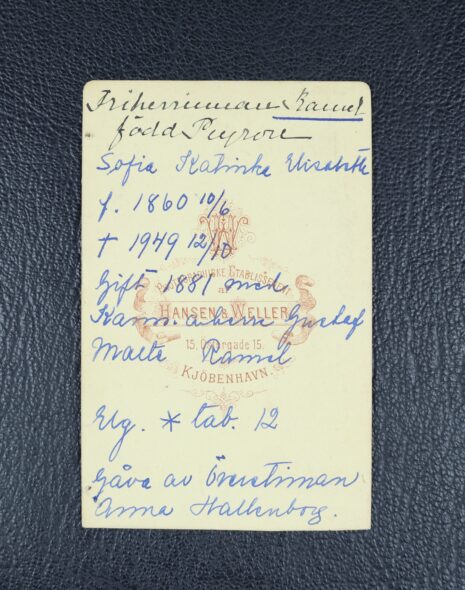 Friherrinnan Ramel
född Peyron
Sofia Katinka Elisabeth
f. 1860 10/6
† 1949 12/10
PHOTOGRAPHISKE ETABLISSEMENT
Gift 1881 med
af
HANSEN & WELLER
Kamm. Gustaf
15, Østergade 15.
Malte Ramel
KJÖBENHAVN.
Elg. * tab. 12
Gåva av Överstinnan
Anna Hallenborg.